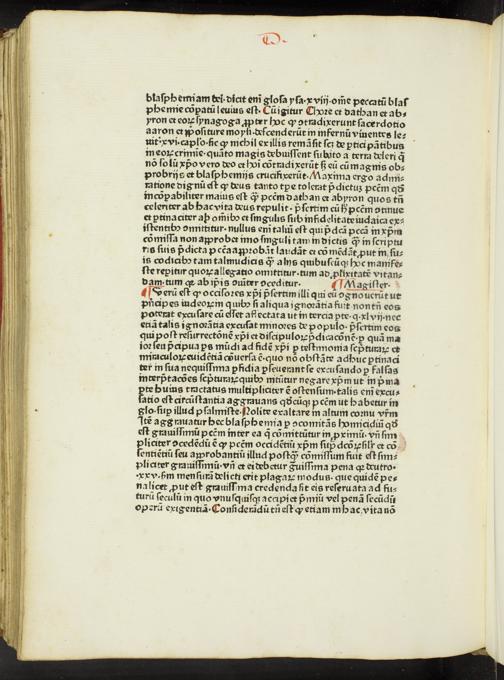 blasphemiam dei. dicit eni glosa ysa. xviij. ome peccatū blas
phemie cōpatū leuius est. Cū igitur Chore et dathan et ab-
yron et eorꝫ synagoga ꝓpter hoc ꝙ ꝯtradixerunt sacerdotio
aaron et ꝓpositure moysi descenderūt in infernū viuentes le-
uit. xvi. capłō. sic ꝙ nichil ex illis remāsit sꝫ de pticipātibus
in eorꝫ crimie. quāto magis debuissent subito a terra deleri ꝙ
nō solū xpō vero deo et hoī cōtradixerūt sꝫ eū cū magnis ob-
probrijs et blasphemijs crucifixerūt. Maxima ergo admi-
ratione dignū est ꝙ deus tanto tpe tolerat pdictuꝫ pccm qd
incōpabiliter maius est ꝙ pccm dathan et abyron quos tn
celeriter ab hac vita deus repulit. psertim cū hꝫ pccm ꝯtinue
et ptinaciter ab omibꝫ et singulis sub infidelitate iudaica ex-
istentibꝫ ōmittitur. nullus eni taliū est qui pdcā pccā in xpm
cōmissa non approbet imo singuli tam in dictis ꝙ in scriptu
ris suis pdicta pccā approbāt laudāt et cōmēdāt. put in su-
is codicibꝫ tam talmudicis ꝙ alijs quibuscūꝙ hoc manife-
ste repitur quorꝫ allegatio omittitur. tum ad plixitatē vitan-
dam. tum ꝙ ab ipis ōuiter ꝯceditur. ¶ Magister.
¶ Verū est ꝙ occisores xpi psertim illi qui eū ognouerūt ut
pncipes iudeorꝫ in quibꝫ si aliqua ignorātia fuit non tn eos
poterat excusare cū esset affectata ut in tercia pte. q. xlvij. nec
etiā talis ignorātia excusat minores de populo. psertim eos
qui post resurrectionē xpi et discipulorꝫ pdicacōnē. ꝙ quā ma
ior seu pcipua ps mūdi ad fidem xpi ꝙ testimonia scpturarꝫ et
miraculorꝫ euidētiā cōuersa ē. quo nō obstāte adhuc ptinaci
ter in sua nequissima pfidia pseuerant se excusando ꝙ falsas
interptacōes scpturarꝫ quibꝫ nituntur negare xpm ut in pma
pte huius tractatus multipliciter ē ostensum. talis eni excu-
satio est circūstantia aggrauans qdcūꝙ pccm ut habetur in
glo. sup illud psalmiste. Nolite exaltare in altum cornu vrm
Itē aggrauatur hec blasphemia ꝙ ꝯcomitās homicidiū qd
est grauissimū pccm inter ea ꝙ cōmittūtur in pximū. vn sim
pliciter ꝯcedēdū ē ꝙ pccm occidētiū xpm sup dcorꝫ sil et cō
sentiētiū seu approbantiū illud postꝙ cōmissum fuit est sim-
pliciter grauissimū. vn et ei debetur guissima pena ꝙ deutro-
xxv. sm mensurā delicti erit plagarꝫ modus. que quidē pe-
na licet, put est grauissima credenda sit eis reseruata ad fu-
turū seculū in quo vnusquisqꝫ accipiet pmiū vel penā secūdū
operū exigentiā. Considerādū tn est ꝙ etiam in hac vita nō